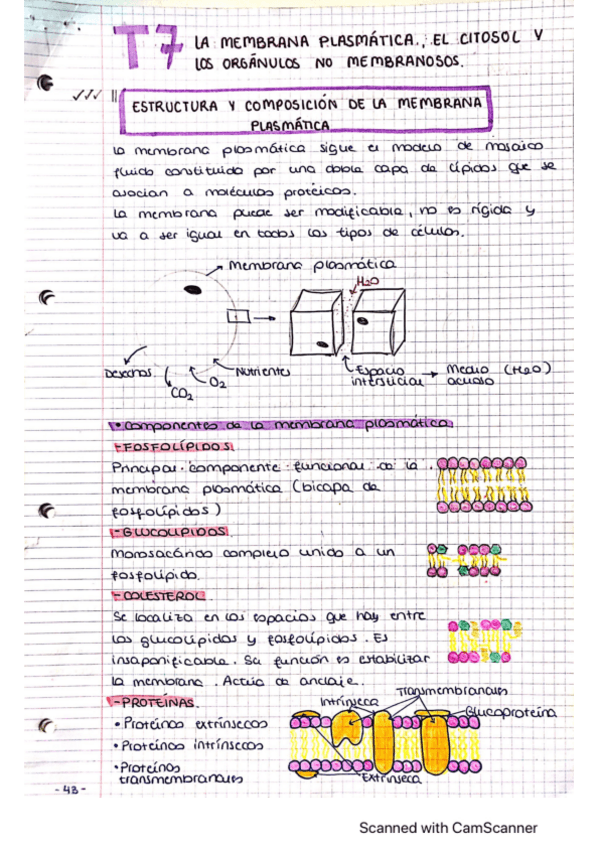 T7
LA MEMBRANA PLASMÁTICA, EL CITOSOL Y
LOS ORGÁNULOS NO MEMBRANOSOS.
ESTRUCTURA Y COMPOSICIÓN DE LA MEMBRANA
PLASMÁTICA
La membrana plasmática sigue el modelo de mosaico
fluido constituido por una doble capa de lípidos que se
asocian a moléculas protéicos.
La membrana puede ser modificable, no es rígida y
va a ser igual en todos los tipos de células.
Membrana plasmática
H2O
Desechos
CO2
O2
Nutrientes
Espacio
intersticial → Medio (H2O)
acuoso
• Componentes de la membrana plasmática
-FOSFOLÍPIDOS
Principal componente funcional de la
membrana plasmática (bicapa de
fosfolípidos)
-GLUCOLIPIDOS
Monosacárido complejo unido a un
fosfolípido.
-COLESTEROL
Se localiza en los espacios que hay entre
los glucolípidos y fosfolípidos. Es
insaponificable. Su función es estabilizar
la membrana. Actúa de anclaje.
-PROTEÍNAS
• Proteínas extrínsecas
• Proteínas intrínsecas
• Proteínas
transmembranales
Intrínseca
Transmembranales
Glucoproteína
Extrínseca
-43-
Scanned with CamScanner